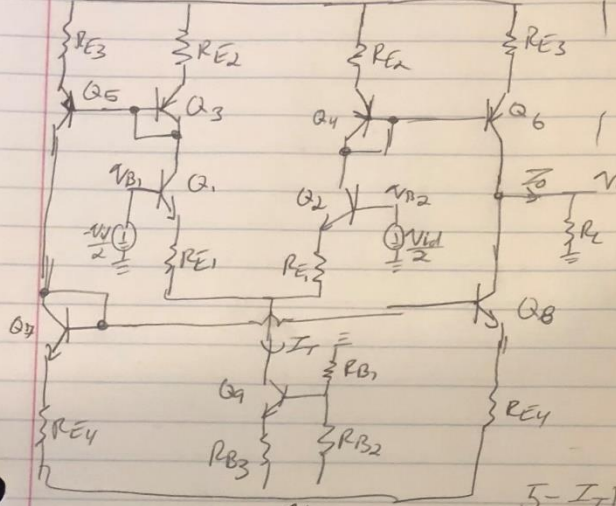 RE3
RE2
RE2
RE3
Q5
Q3
Q4
Q6
VB1
Q1
Q2
VB2
Io
V
Vid/2
Vid/2
RE1
RE1
RL
Q7
Q8
IT
RB1
Q9
RE4
RB3
RB2
RE4
5-IT